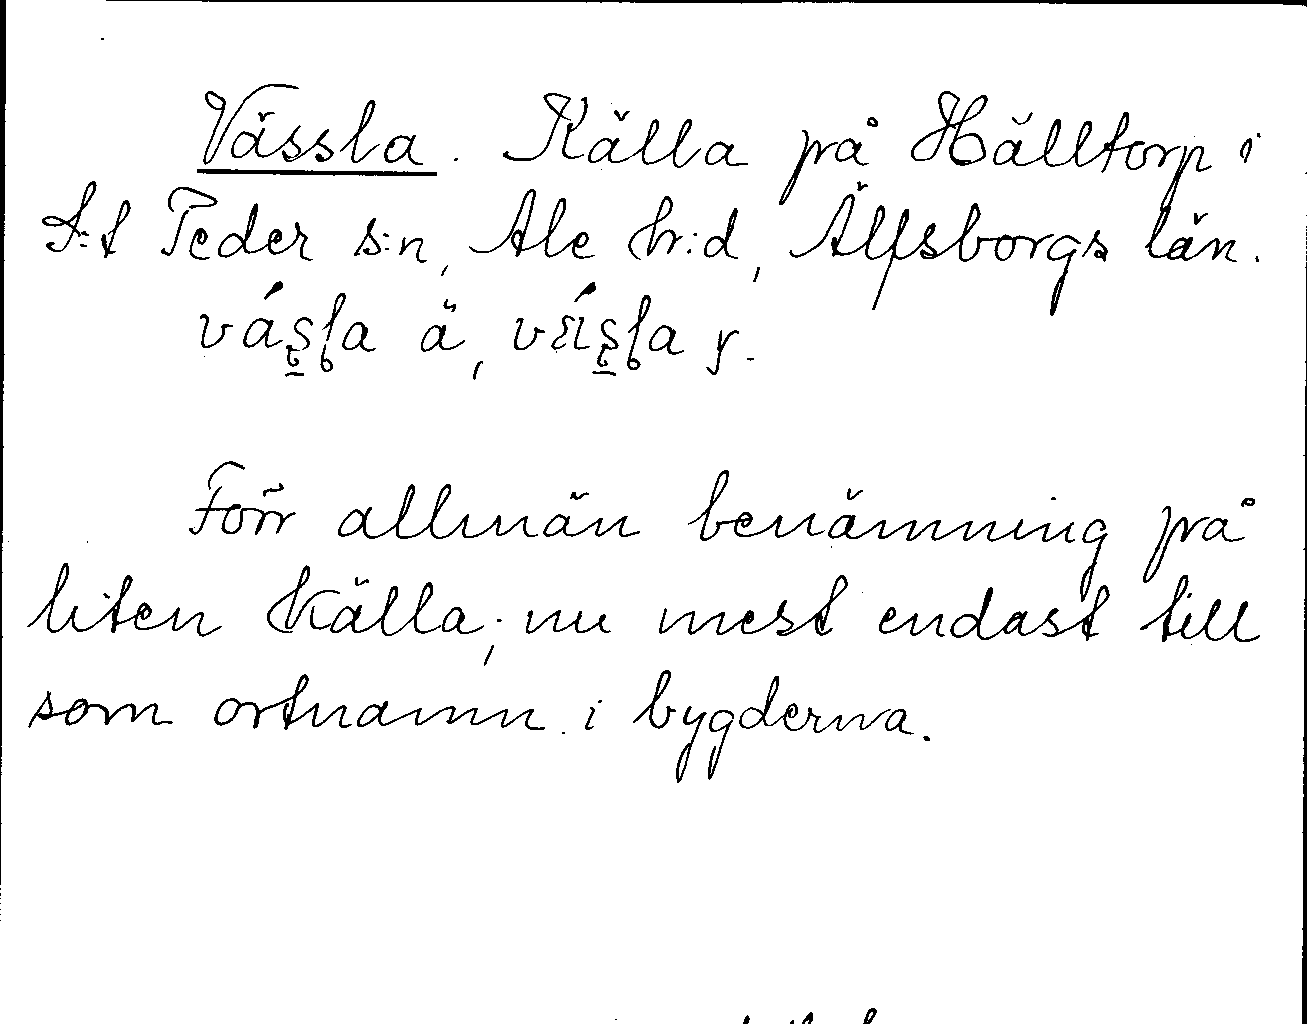 Vässla. Källa på Hälltorp i
S:t Peder s:n, Ale hr:d, Älfsborgs län.
ä, y.
Förr allmän benämning på
liten källa; nu mest endast till
som ortnamn i bygderna.